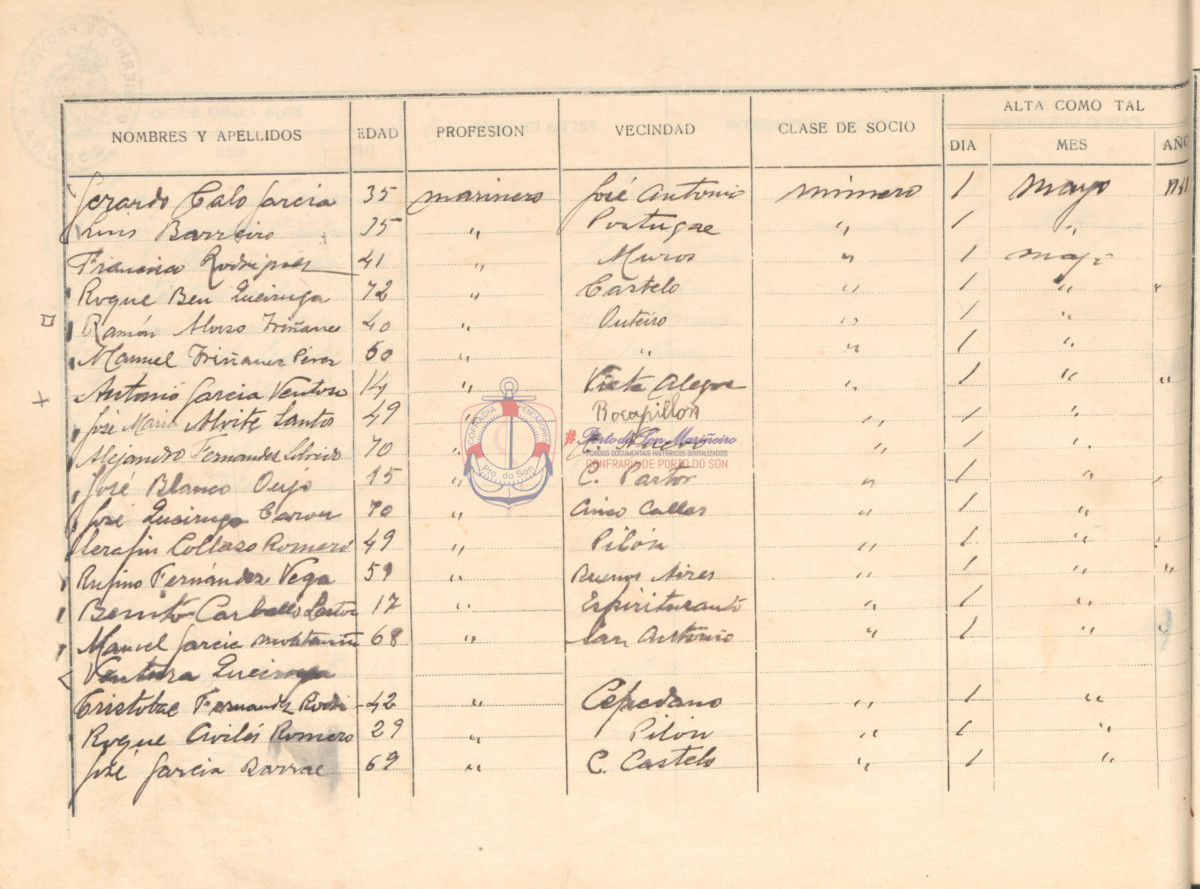 NOMBRES Y APELLIDOS EDAD PROFESION VECINDAD CLASE DE SOCIO ALTA COMO TAL
DIA MES AÑO
Gerardo Calo García 35 marinero José Antonio 1 Mayo
Luis Barreiro 35 " Portugal " 1 "
Francisco Rodriguez 41 " Muros " 1 mayo
Roque Ben Queiruga 72 " Castelo " 1 " "
Ramón Alonso Triñanes 40 " Outeiro " 1 "
Manuel Triñanes Pérez 60 " " " 1 "
Antonio García Ventoso 14 " Vista Alegre " 1 " "
José Maria Alvite Santos 49 " " 1 "
Alejandro Fernandez 70 " " 1 "
José Blanco Oujo 15 " C. Pastor " 1 " "
José Queiruga 70 " Cinco Calles " 1 "
Serafin Collazo Romero 49 " Pilón " 1 " "
Rufino Fernández Vega 59 " Buenos Aires " 1 " "
Benito Carballo Santos 17 " Espiritusanto " 1 "
Manuel García 68 " San Antonio " 1 " "
Ventura Queiruga
Cristobal Fernandez Rodri 42 " Cepedano " 1 "
Roque Avilés Romero 29 " Pilón " 1 "
José García Barral 69 " C. Castelo " 1 "
COFRADIA PESCADORES
Pto. do Son
#Porto do Son Mariñeiro
FONDOS DOCUMENTAIS HISTÓRICOS DIXITALIZADOS
CONFRARÍA DE PORTO DO SON